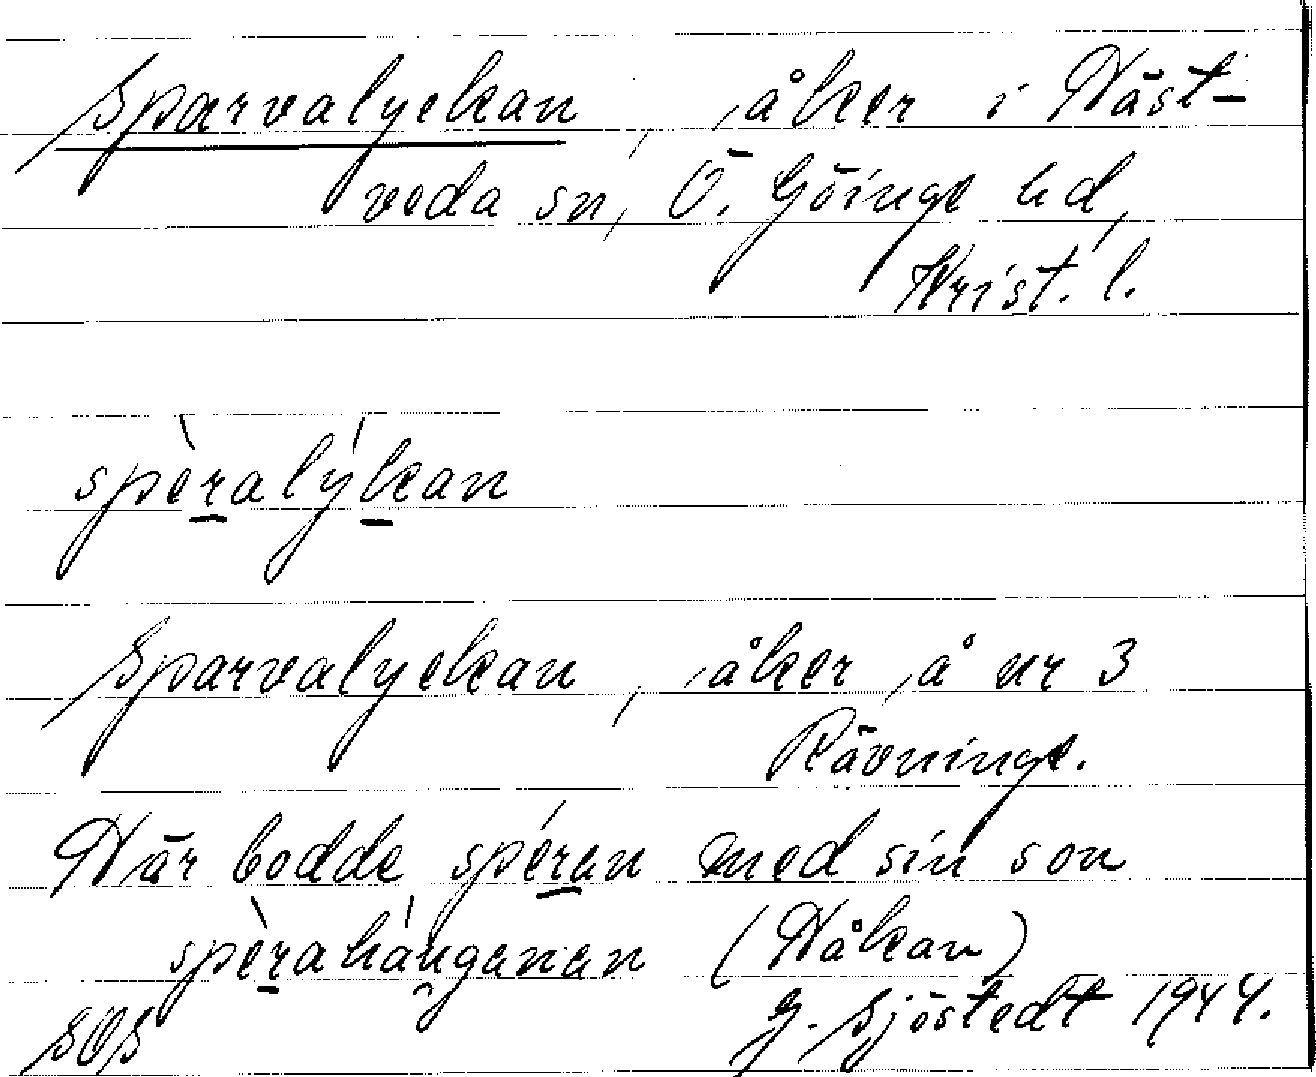 Sparvalyckan, åker i Näst-
veda sn, Ö. Göinge hd,
Krist. l.
spèralýkan
Sparvalyckan, åker å nr 3
Rävninge.
Här bodde spéran med sin son
spèraháŋganan (Håkan)
G. Sjöstedt 1944.
SOS